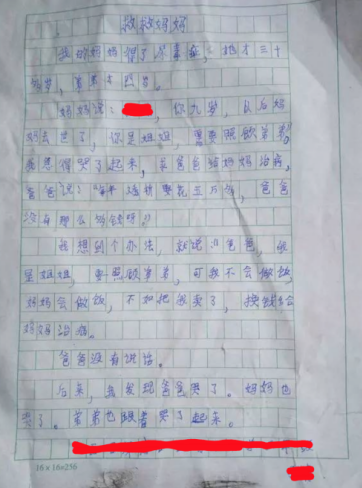 救救妈妈
我的妈妈得了尿毒症,她才三十
岁,弟弟才四岁。
妈妈说:,你九岁,以后妈
妈去世了,你是姐姐,需要照顾弟弟,
我急得哭了起来,求爸爸给妈妈治病,
爸爸说:“ 妈妈要花三万 ,爸爸
没有那么多的钱呀!”
我想到个办法,就说:“爸爸,我
是姐姐,要照顾弟弟,可我不会做饭,
妈妈会做饭,不如把我卖了,换钱给
妈妈治病。
爸爸没有说话。
后来,我发现爸爸哭了。妈妈也
哭了。弟弟也跟着哭了起来。
16×16=256